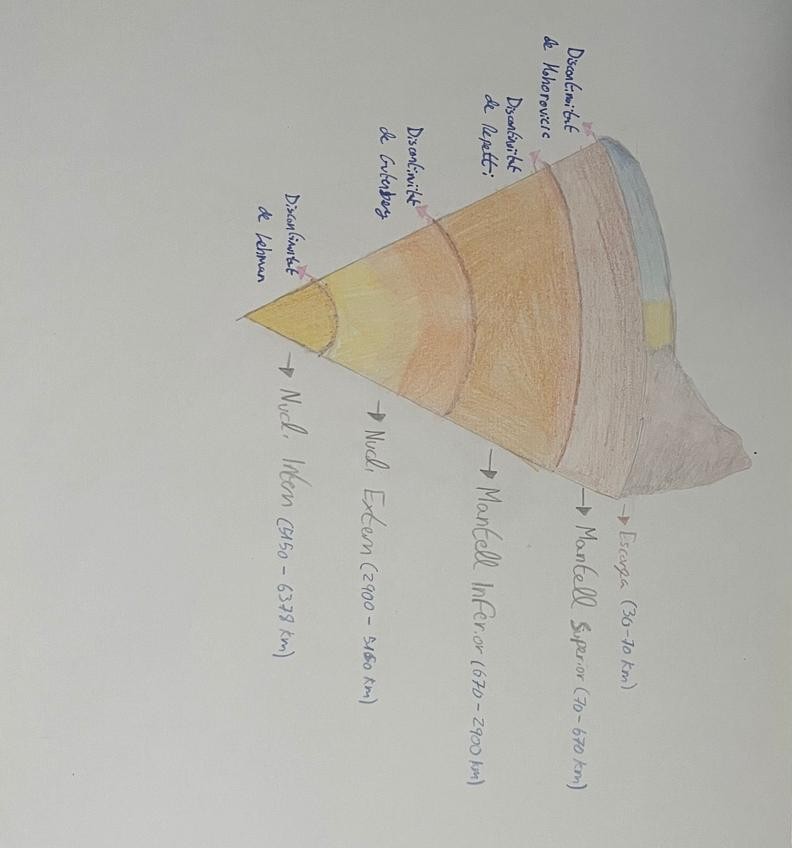 Discontinuïtat
de Mohorovicic
Discontinuitat
de Repetti
Discontinuitat
de Gutenberg
Discontinuitat
de Lehman
→ Escorça (30-70 km)
→ Mantell Superior (70-670 km)
→ Mantell Inferior (670-2900 km)
→ Nucli Extern (2900-5150 km)
→ Nucli Intern (5150-6378 km)